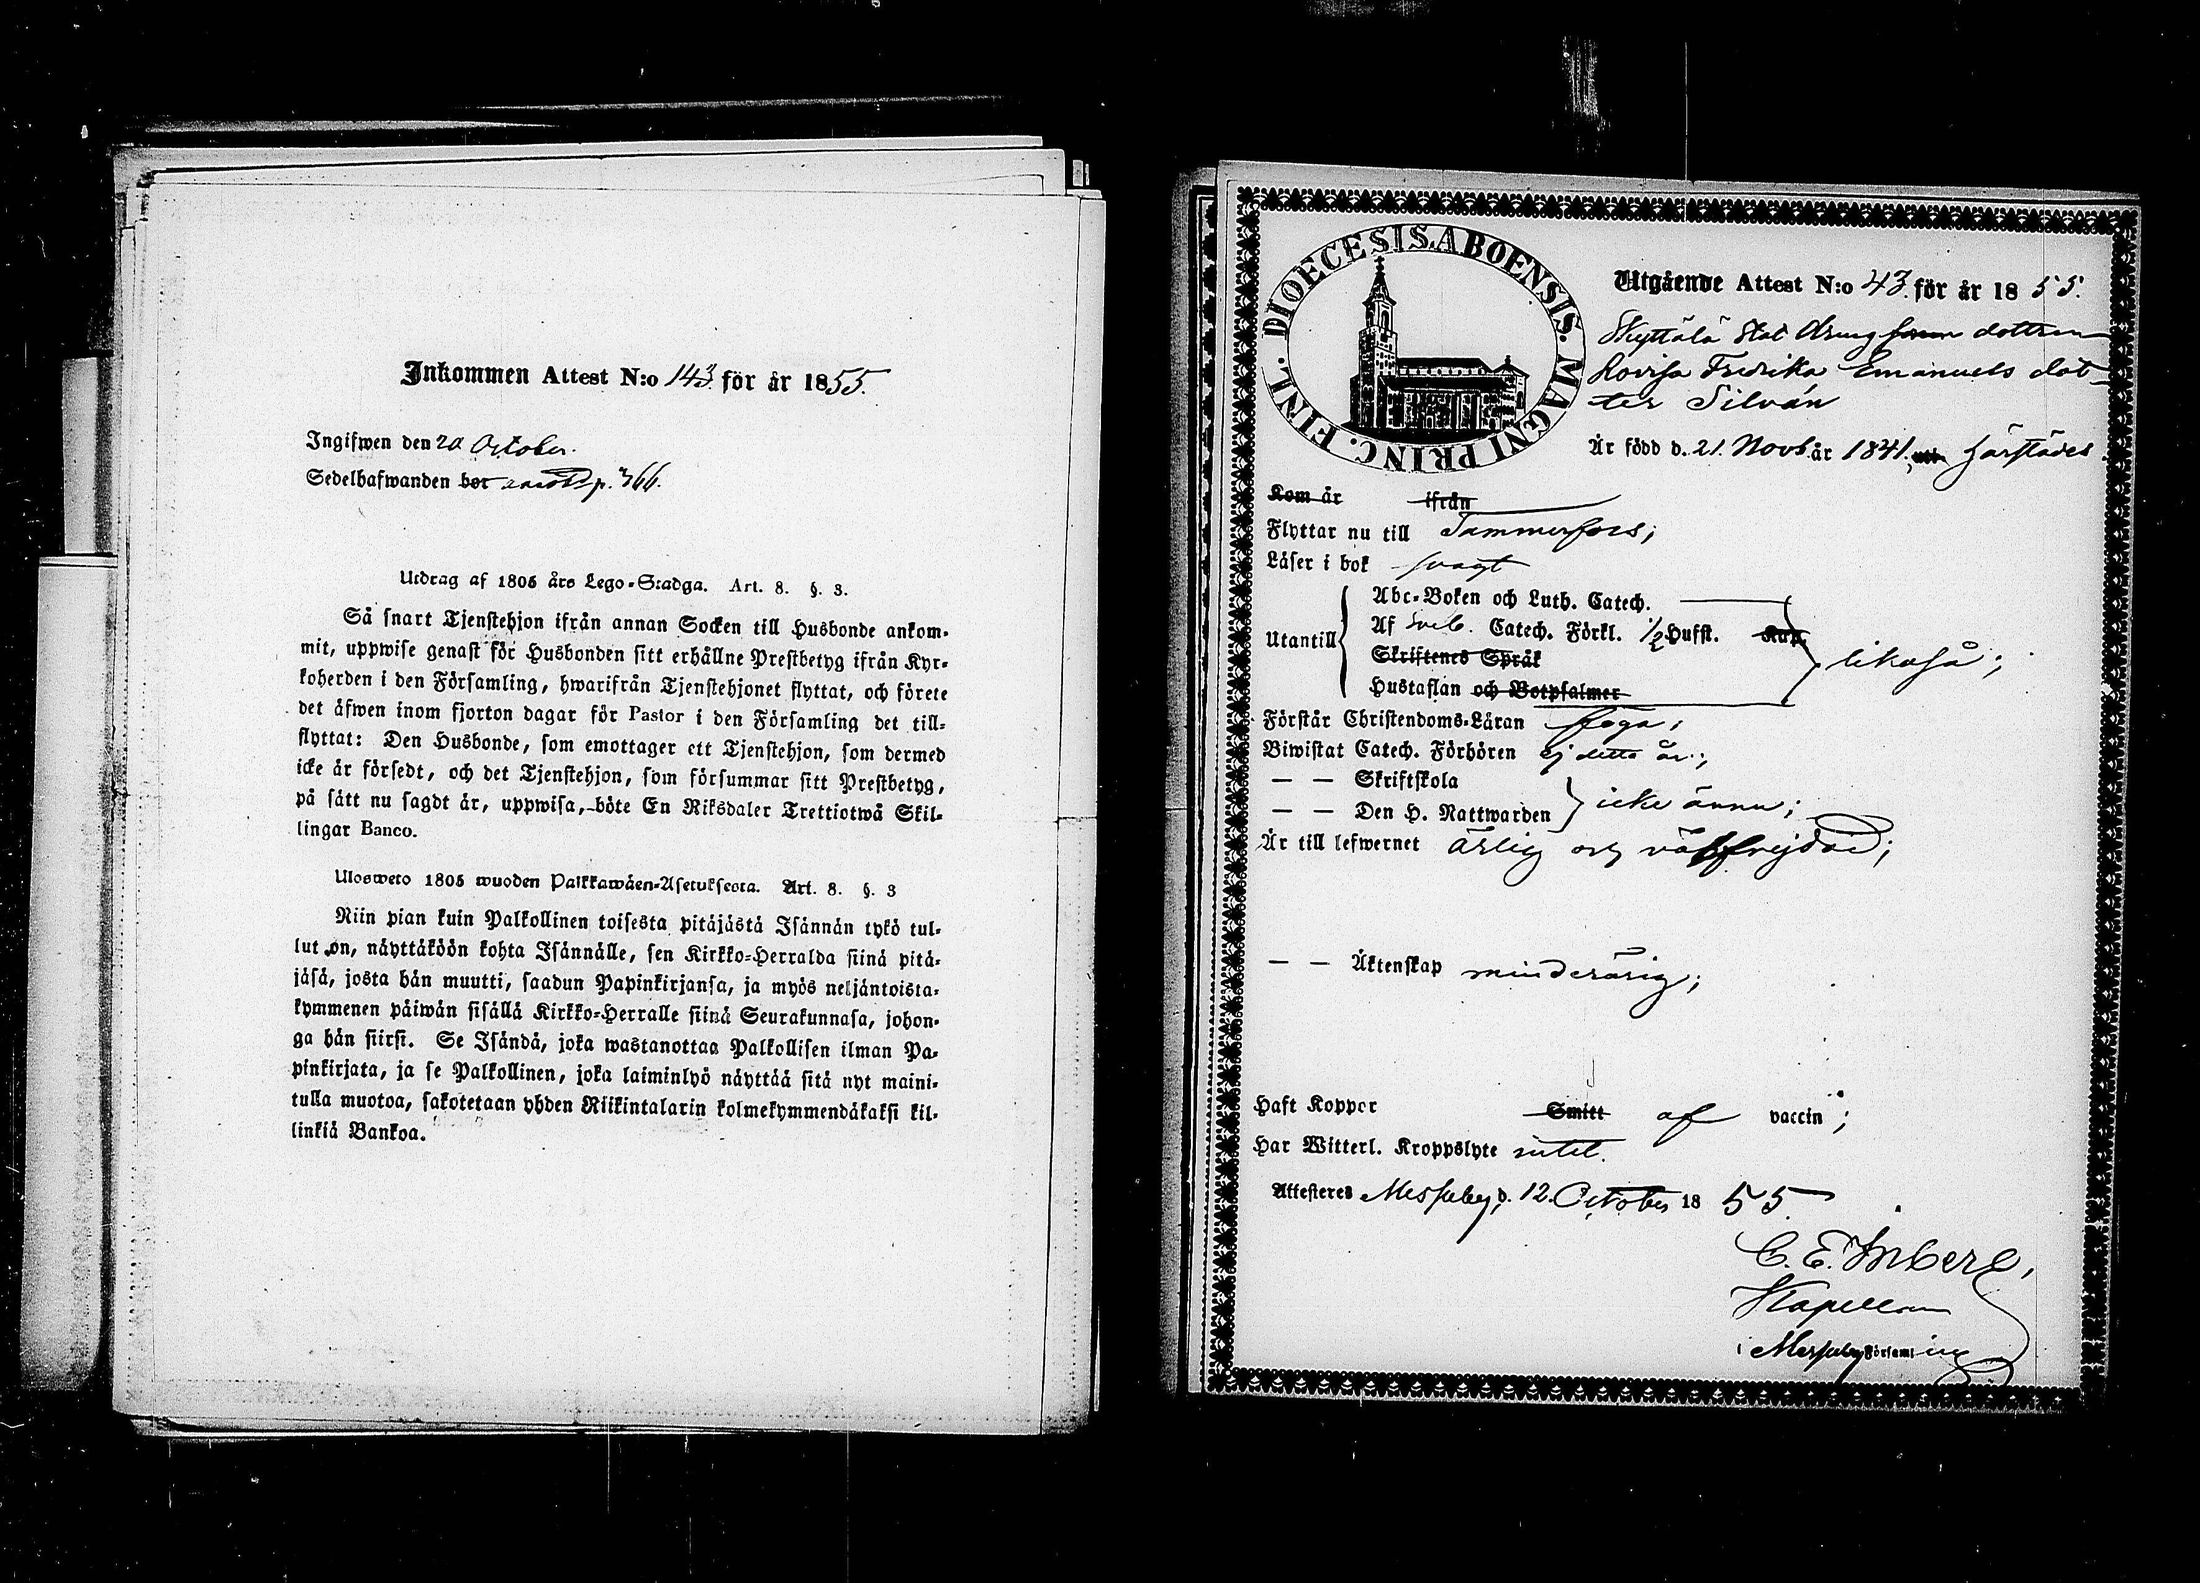 Inkommen Attest N:o 143. för år 1855.
Ingifwen den 20 October.
Sedelhafwanden bor p. 366.
Utdrag af 1805 års Lego-Stadga. Art. 8. §. 3.
Så snart Tjenstehjon ifrån annan Socken till Husbonde ankom-
mit, uppwise genast för Husbonden sitt erhållne Prestbetyg ifrån Kyr-
koherden i den Församling, hwarifrån Tjenstehjonet flyttat, och förete
det äfwen inom fjorton dagar för Pastor i den Församling det till-
flyttat: Den Husbonde, som emottager ett Tjenstehjon, som dermed
icke är försedt, och det Tjenstehjon, som försummar sitt Prestbetyg,
på sätt nu sagdt är, uppwisa, böte En Riksdaler Trettiotwå Skil-
lingar Banco.
Ulosweto 1805 wuoden Palkkawäen-Asetuksesta. Art. 8. §. 3
Niin pian kuin Palkollinen toisesta pitäjästä Isännän tykö tul-
lut on, näyttäköön kohta Isännälle, sen Kirkko-Herralda siinä pitä-
jäsä, josta hän muutti, saadun Papinkirjansa, ja myös neljäntoista-
kymmenen päiwän sisällä Kirkko-Herralle siinä Seurakunnasa, johon-
ga hän siirsi. Se Isändä, joka wastanottaa Palkollisen ilman Pa-
pinkirjata, ja se Palkollinen, joka laiminlyö näyttää sitä nyt maini-
tulla muotoa, sakotetaan yhden Riikintalarin kolmekymmendäkaksi kil-
linkiä Bankoa.
DIOECESIS. ABOENSIS. MAGNI PRINC. FINL.
Utgående Attest N:o 43. för år 1855.
Skyttälä Stat Dreng dottren
Lovisa Fredrika Emanuels dot-
ter Silván
Är född d. 21. Novb. år 1841. uti härstädes
Kom år ifrån
Flyttar nu till Tammerfors;
Läser i bok svagt
Utantill
Abc-Boken och Luth. Catech.
Af Sveb. Catech. Förkl. 1/2 Hufst. Kap.
Skriftenes Språk
Hustaflan och Botpsalmer
likaså;
Förstår Christendoms-Läran föga;
Biwistat Catech. Förhören ej detta år;
— — Skriftskola
— — Den H. Nattwarden
icke ännu;
Är till lefwernet ärlig och välfrejdad;
— — Äktenskap minderårig;
Haft Koppor Smitt af vaccin;
Har Witterl. Kroppslyte intet.
Attesteras Messuby, d. 12. October 1855.
C. E. Inberg,
Kapellan
i Messuby Församling